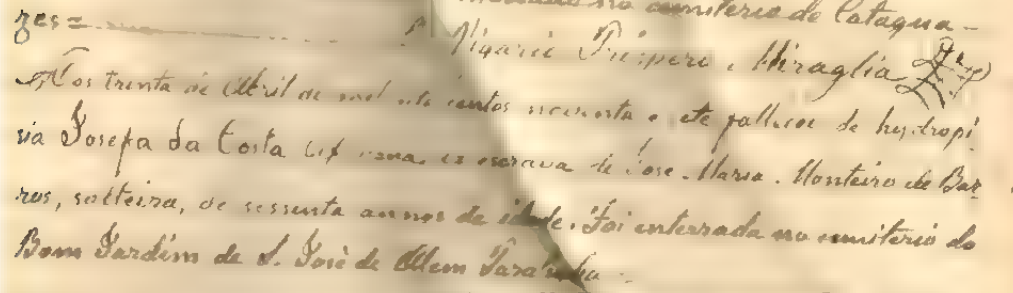 no cemiterio de Catagua-
zes =
O Vigario Prospero Miraglia
Aos trinta de Abril de mil oito centos noventa e sete falleceo de hydropi
sia Josefa da Costa africana, ex escrava de José Maria Monteiro de Bar
ros, solteira, de sessenta annos de idade. Foi enterrada no cemiterio do
Bom Jardim de S. José de Alem Parahyba.